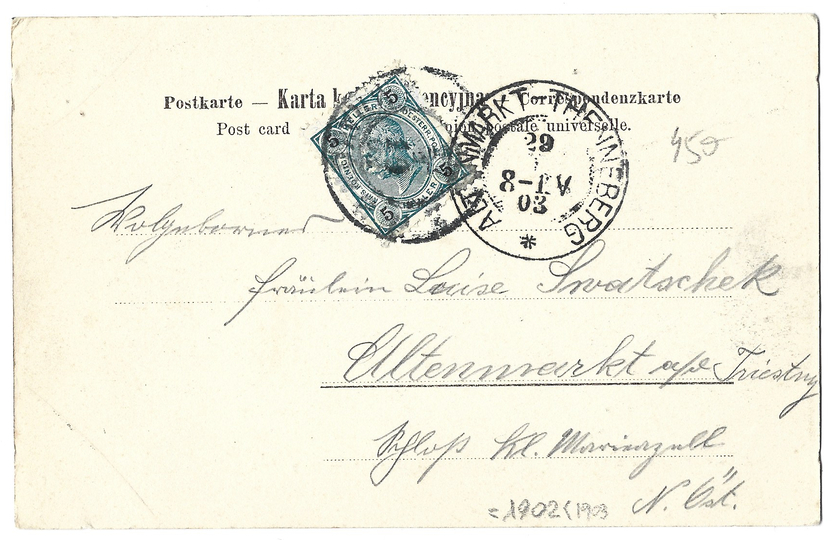 Postkarte — Karta ko encyjna Correspondenzkarte
Post card union postale universelle.
5 HELLER 5
5 HELLER 5
ALTENMARKT THENNEBERG
29
8-IV
03
*
450
Wolgeborner
Fräulein Louise Swatschek
Altenmarkt a/d Triesting
Schloß Kl. Mariazell
N. Öst.
=1902(1903